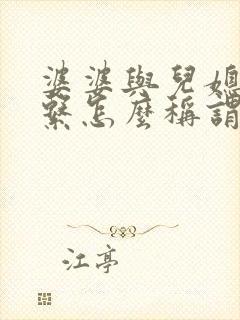 婆婆與兒媳
繫怎麼稱謂
江亭